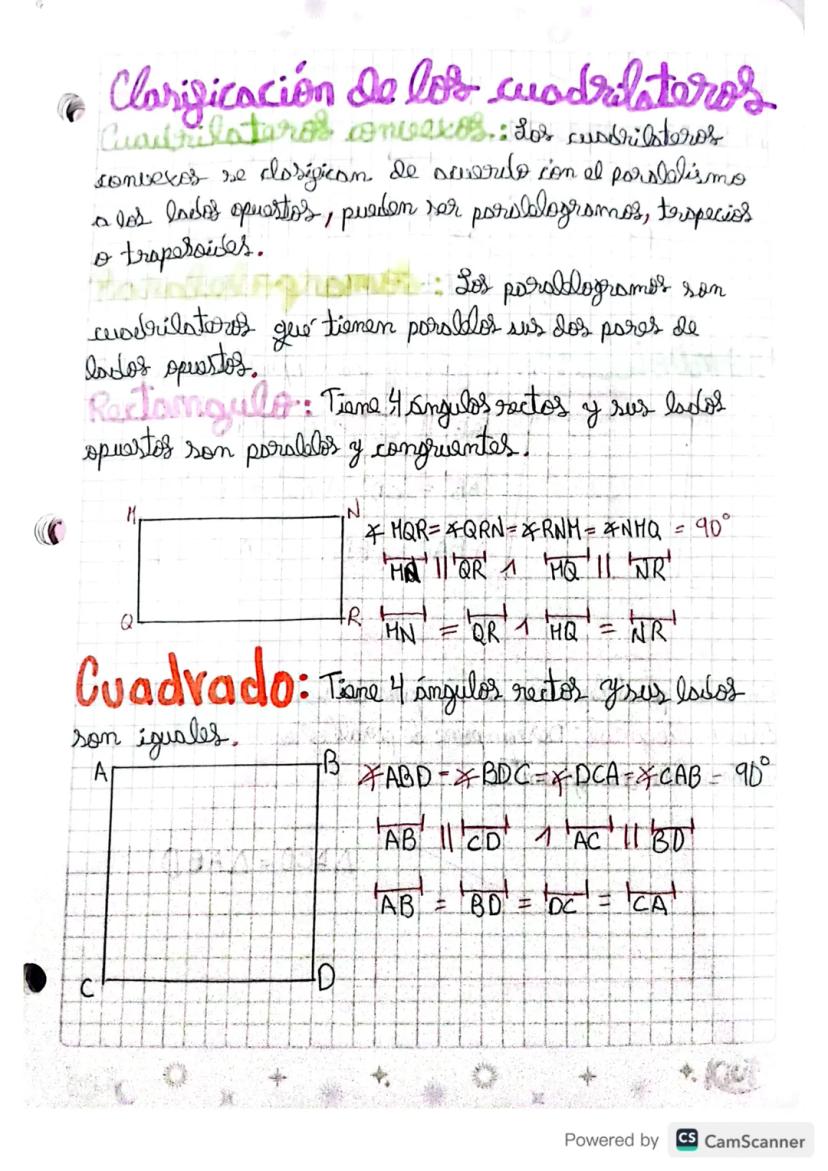 Clasificación de los cuadrilateros
Cuadrilateros convexos.: Los cuadrilateros
convexos se clasifican de acuerdo con el paralelismo
a los lados opuestos, pueden ser paralelogramos, trapecios
o trapesoides.
Paralelogramos: Los paralelogramos son
cuadrilateros que tienen paralelos sus dos pares de
lados opuestos.
Rectangulo: Tiene 4 ángulos rectos y sus lados
opuestos son paralelos y congruentes.
M N ∡MQR=∡QRN=∡RNM=∡NMQ = 90°
MN || QR ∧ MQ || NR
Q R MN = QR ∧ MQ = NR
Cuadrado: Tiene 4 ángulos rectos y sus lados
son iguales.
A B ∡ABD=∡BDC=∡DCA=∡CAB = 90°
AB || CD ∧ AC || BD
AB = BD = DC = CA
C D
Powered by CS CamScanner